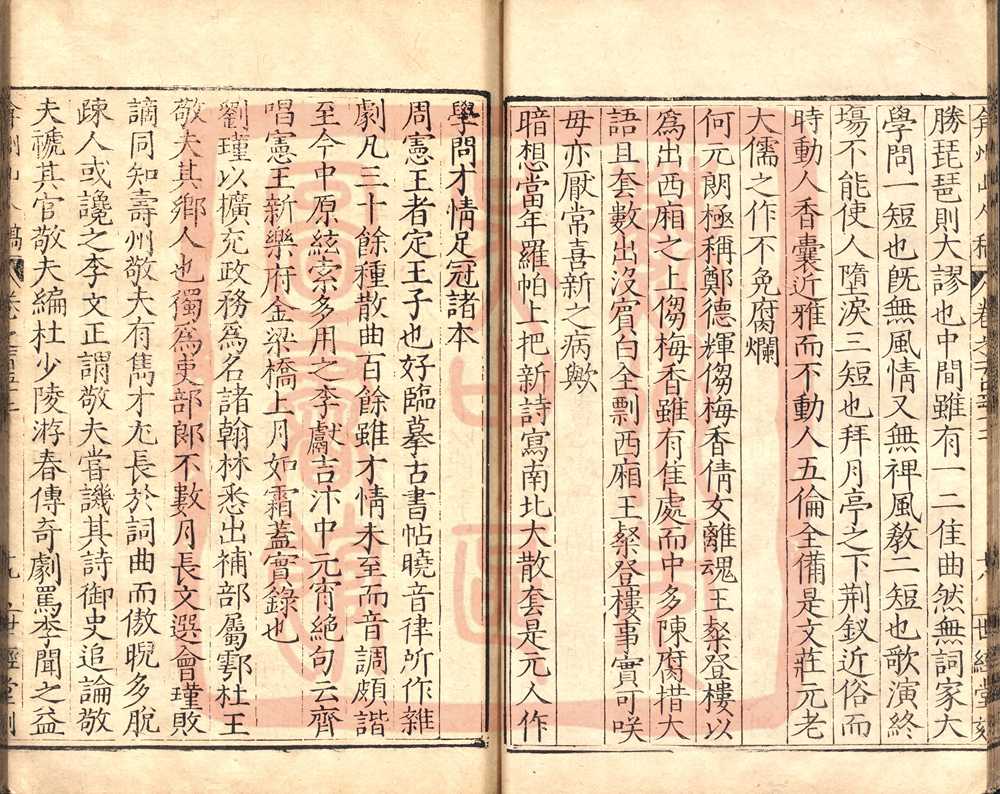 勝琵琶則大謬也中間雖有一二佳曲然無詞家大
學問一短也既無風情又無裨風教二短也歌演終
塲不能使人墮淚三短也拜月亭之下荆釵近俗而
時動人香囊近雅而不動人五倫全備是文莊元老
大儒之作不免腐爛
何元朗極稱鄭德輝㑳梅香倩女離魂王粲登樓以
爲出西廂之上㑳梅香雖有佳處而中多陳腐措大
語且套數出沒賓白全剽西廂王粲登樓事實可咲
毋亦厭常喜新之病歟
暗想當年羅帕上把新詩寫南北大散套是元人作
學問才情足冠諸本
周憲王者定王子也好臨摹古書帖曉音律所作雜
劇凡三十餘種散曲百餘雖才情未至而音調頗諧
至今中原絃索多用之李獻吉汴中元宵絕句云齊
唱憲王新樂府金梁橋上月如霜蓋實錄也
劉瑾以擴充政務爲名諸翰林悉出補部屬鄠杜王
敬夫其鄉人也獨爲吏部郎不數月長文選會瑾敗
謫同知壽州敬夫有雋才尤長於詞曲而傲睨多脫
疎人或讒之李文正謂敬夫嘗譏其詩御史追論敬
夫褫其官敬夫編杜少陵游春傳奇劇罵李聞之益
世經堂刻